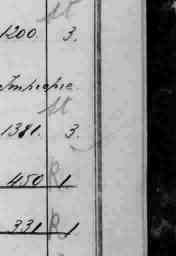 st
1200. 3.
st
1381. 3.
450 R 1
331 R 1